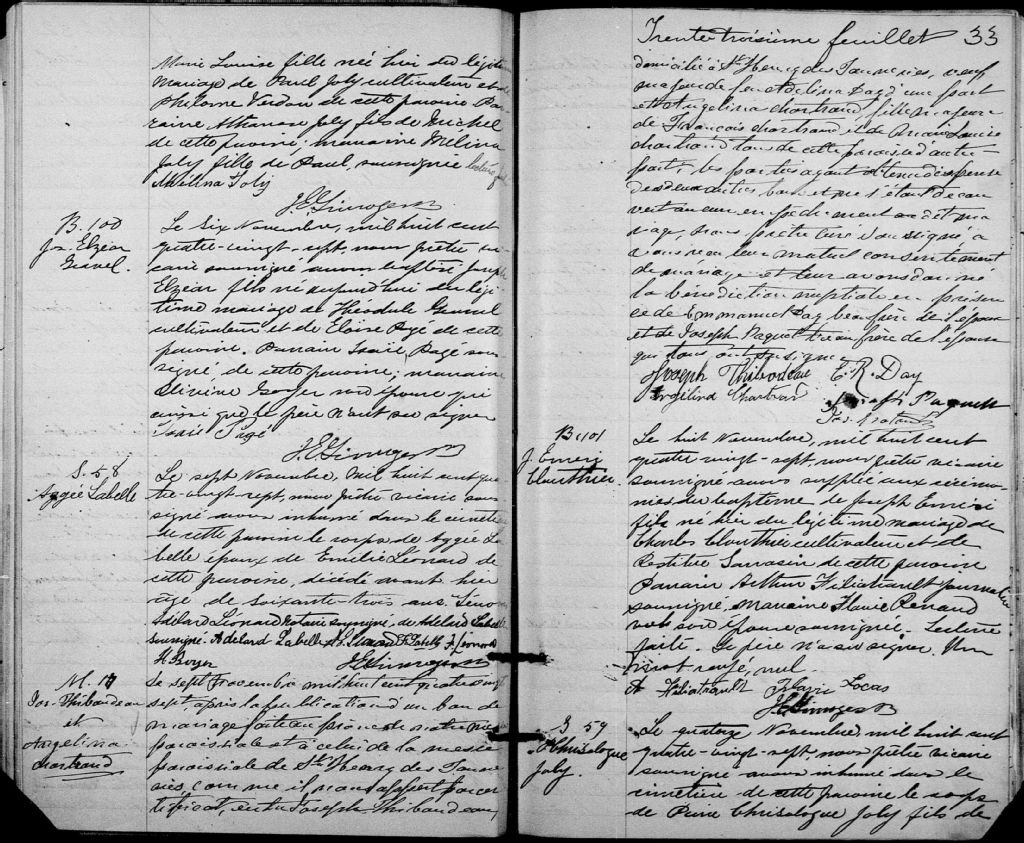 Marie Louise fille née hier du légitime
mariage de Paul Joly cultivateur et de
Philomène Verdon de cette paroisse Pa-
rraine Athanase Joly fils de Michel
de cette paroisse; marraine Mélina
Joly fille de Paul, soussignée
Mélina Joly
B. 100
Js. Elzéar
Le six Novembre, mil huit cent
quatre-vingt-sept, nous prêtre vi-
caire soussigné avons baptisé Joseph
Elzéar fils né aujourd'hui du légi-
time mariage de Théodule
cultivateur et de Eloïse Pagé de cette
paroisse. Parrain Isaïe Pagé sous-
signé, de cette paroisse; marraine
qui
ainsi que le père n'ont su signer
Isaïe Pagé
S. 58
Aggée Labelle
Le sept Novembre, mil huit cent qua-
tre-vingt-sept, nous prêtre vicaire sous-
signé avons inhumé dans le cimetière
de cette paroisse le corps de Aggée La-
belle époux de Emilie Léonard de
cette paroisse, décédé avant hier
agé de soixante-trois ans. Témoins
Adélard Léonard Notaire soussigné, de Adélard Labelle
soussigné. Adelard Labelle
H Boyer
M. 17
Jos. Thibaudeau
et
Angelina
Chartrand
Le sept Novembre mil huit cent quatre vingt
sept après la publication d'un ban de
mariage faite au prône de notre messe
paroissiale et à celui de la messe
paroissiale de St Henry des Tanne-
ries, comme il nous appert par cer-
tificat, entre Joseph Thibaudeau,
Trente-troisième feuillet 33
domicilié à St Henry des Tanneries, veuf
majeur de feu Adelina Pagé d'une part
et Angelina Chartrand, fille majeure
de François Chartrand et de Marie Louise
Chartrand tous de cette paroisse d'autre
part; les parties ayant obtenu dispense
des deux autres bans et ne s'étant décou-
vert aucun empêchement au dit ma-
riage, nous prêtre curé soussigné a-
vons reçu leur mutuel consentement
de mariage et leur avons donné
la bénédiction nuptiale en présen-
ce de Emmanuel Day beaufrère de l'époux
et de Joseph Paquette beaufrère de l'épouse
qui tous ont signé
Joseph Thibodeau E. R. Day
Angelina Chartrand
B. 101
J. Emeri
Clouthier.
Le huit Novembre, mil huit cent
quatre-vingt-sept, nous prêtre vicaire
soussigné avons suppléé aux cérémo-
nies du baptême de Joseph Emeri
fils né hier du légitime mariage de
Charles Clouthier cultivateur et de
Restitue Sarrasin de cette paroisse
Parrain Arthur Filiatrault journalier
soussigné, marraine Flavie Renaud
son épouse soussignée. Lecture
faite. Le père n'a su signer. Un
mot rayé, nul.
A Filiatrault
S 59
Chrisologue
Joly.
Le quatorze Novembre mil huit cent
quatre-vingt-sept, nous prêtre vicaire
soussigné avons inhumé dans le
cimetière de cette paroisse le corps
de Pierre Chrisologue Joly fils de